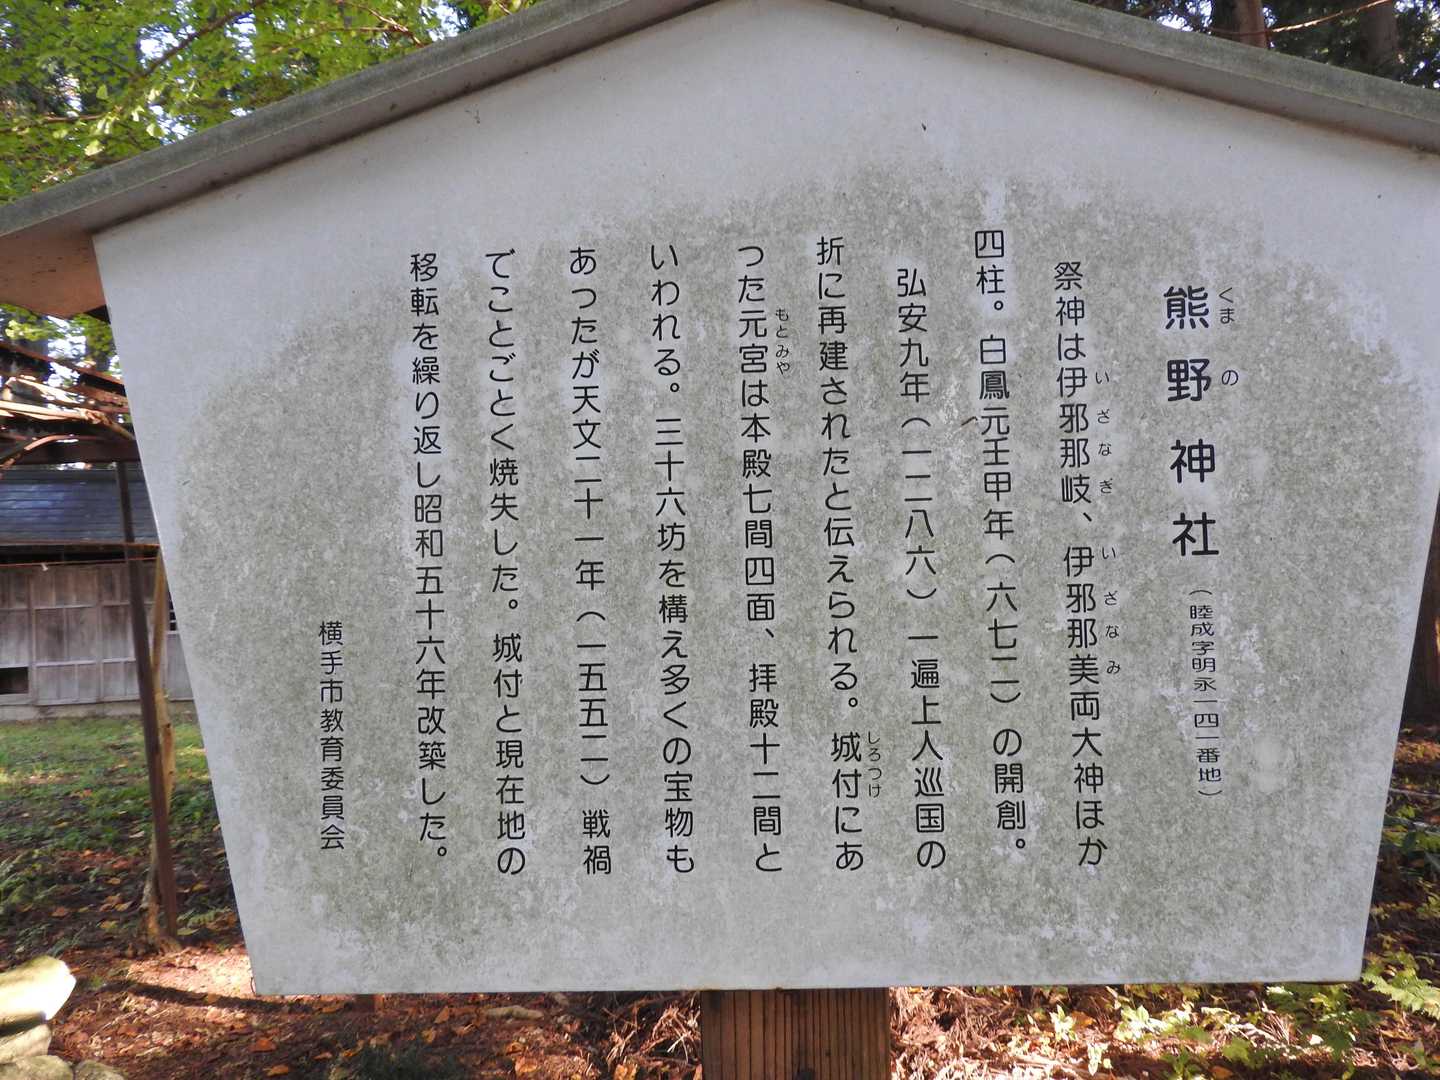 熊野神社(睦成字明永一四一番地)
くまの
祭神は伊邪那岐、伊邪那美両大神ほか
いざなぎ いざなみ
四柱。白鳳元壬甲年(六七二)の開創。
弘安九年(一二八六)一遍上人巡国の
折に再建されたと伝えられる。城付にあ
しろつけ
った元宮は本殿七間四面、拝殿十二間と
もとみや
いわれる。三十六坊を構え多くの宝物も
あったが天文二十一年(一五五二)戦禍
でことごとく焼失した。城付と現在地の
移転を繰り返し昭和五十六年改築した。
横手市教育委員会